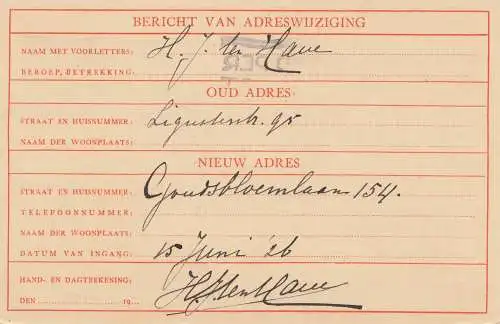 BERICHT VAN ADRESWIJZIGING
NAAM MET VOORLETTERS: H. J. ten Have
BEROEP, BETREKKING:
OUD ADRES
STRAAT EN HUISNUMMER: Ligusterstr. 95
NAAM DER WOONPLAATS:
NIEUW ADRES
STRAAT EN HUISNUMMER: Goudsbloemlaan 154.
TELEFOONNUMMER:
NAAM DER WOONPLAATS:
DATUM VAN INGANG: 15 Juni '26
HAND- EN DAGTEKENING: HJtenHave
DEN 19